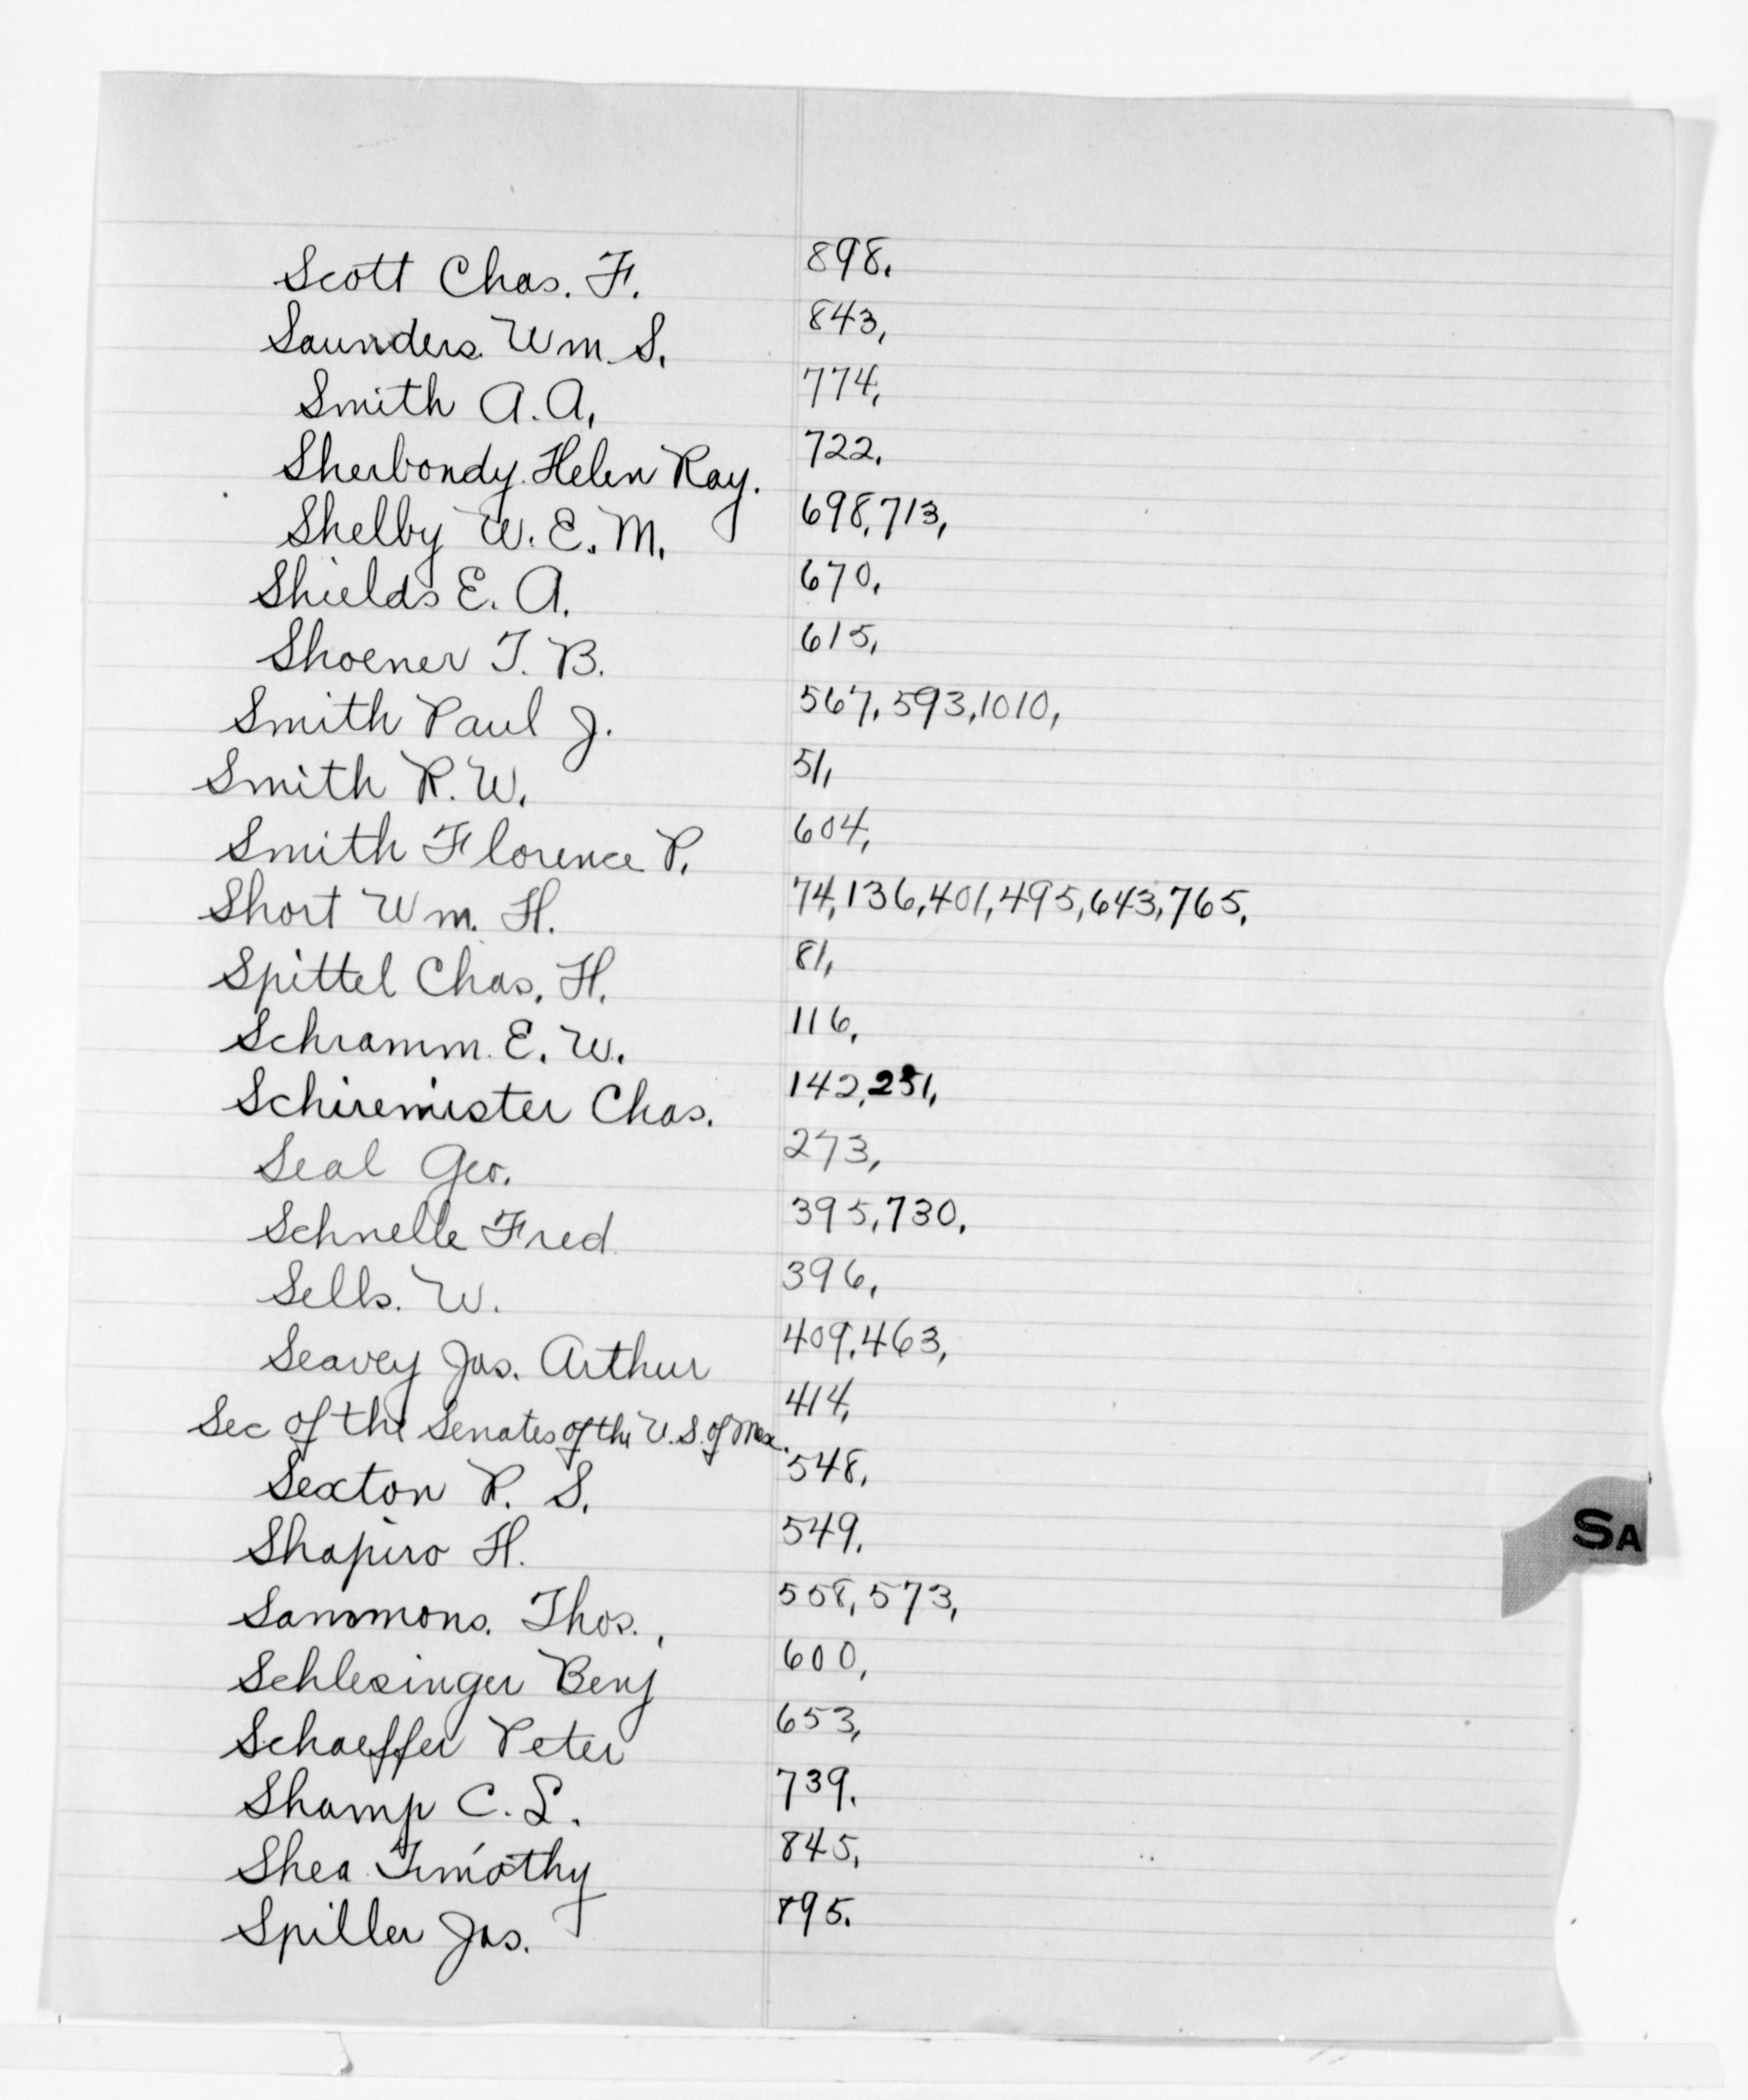 Scott Chas. F. 898.
Saunders. Wm. S. 843,
Smith A. A. 774,
Sherbondy. Helen Ray. 722.
Shelby W. E. M. 698,713,
Shields E. A. 670,
Shoener T. B. 615,
Smith Paul J. 567,593,1010,
Smith R. W. 51,
Smith Florence P. 604,
Short Wm. H. 74,136,401,495,643,765.
Spittel Chas. H. 81,
Schramm. E. W. 116,
Schiremister Chas. 142,251,
Seal Geo. 273,
Schnelle Fred 395,730.
Sells. W. 396,
Seavey Jas. Arthur 409,463,
Sec of the Senates of the U.S. of Mex. 414,
Sexton P. S. 548,
Shapiro H. 549.
Sammons. Thos., 558,573,
SA
Schlesinger Benj 600,
Schaeffer Peter 653,
Shamp C. L. 739.
Shea Timothy 845,
Spiller Jas. 895.